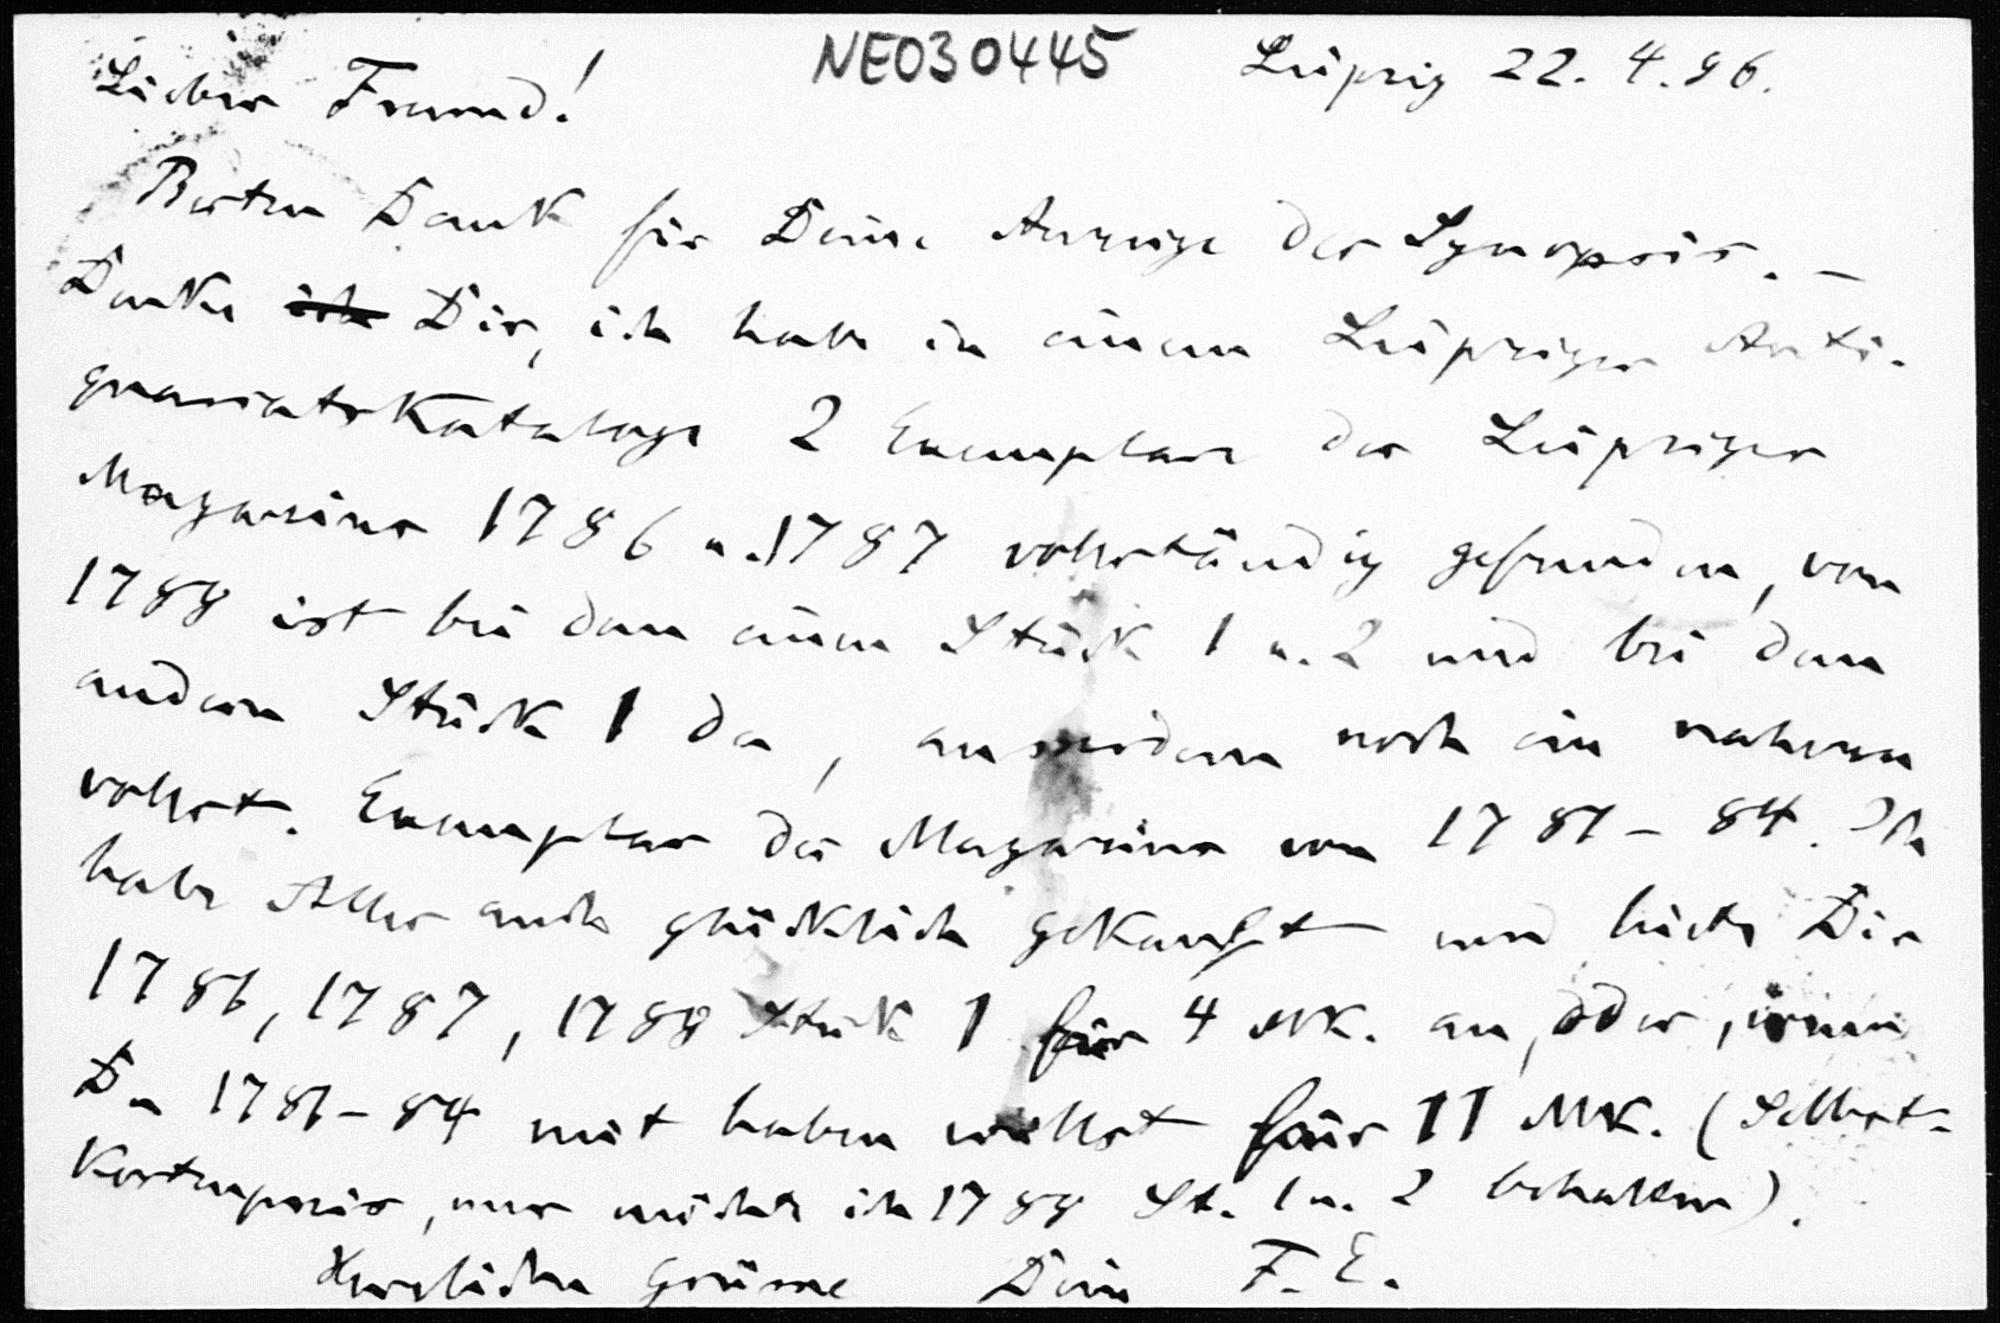 NE030445
Leipzig 22. 4. 96.
Lieber Freund!
Besten Dank für Deine Anzeige der Synopsis. –
Denke ich Dir, ich habe in einem Leipziger Anti-
quariatskataloge 2 Exemplare des Leipziger
Magazins 1786 u. 1787 vollständig gefunden, von
1788 ist bei dem einen Stück 1 u. 2 und bei dem
andern Stück 1 da, ausserdem noch ein
vollst. Exemplar des Magazins von 1781–84. Ich
habe Alles auch glücklich gekauft und biete Dir
1786, 1787, 1788 Stück 1 für 4 Mk. an, oder, wenn
Du 1781–84 mit haben willst für 11 Mk. (Selbst-
kostenpreis, nur möchte ich 1788 St. 1 u. 2 behalten).
Herzlichen Grüsse Dein F. E.